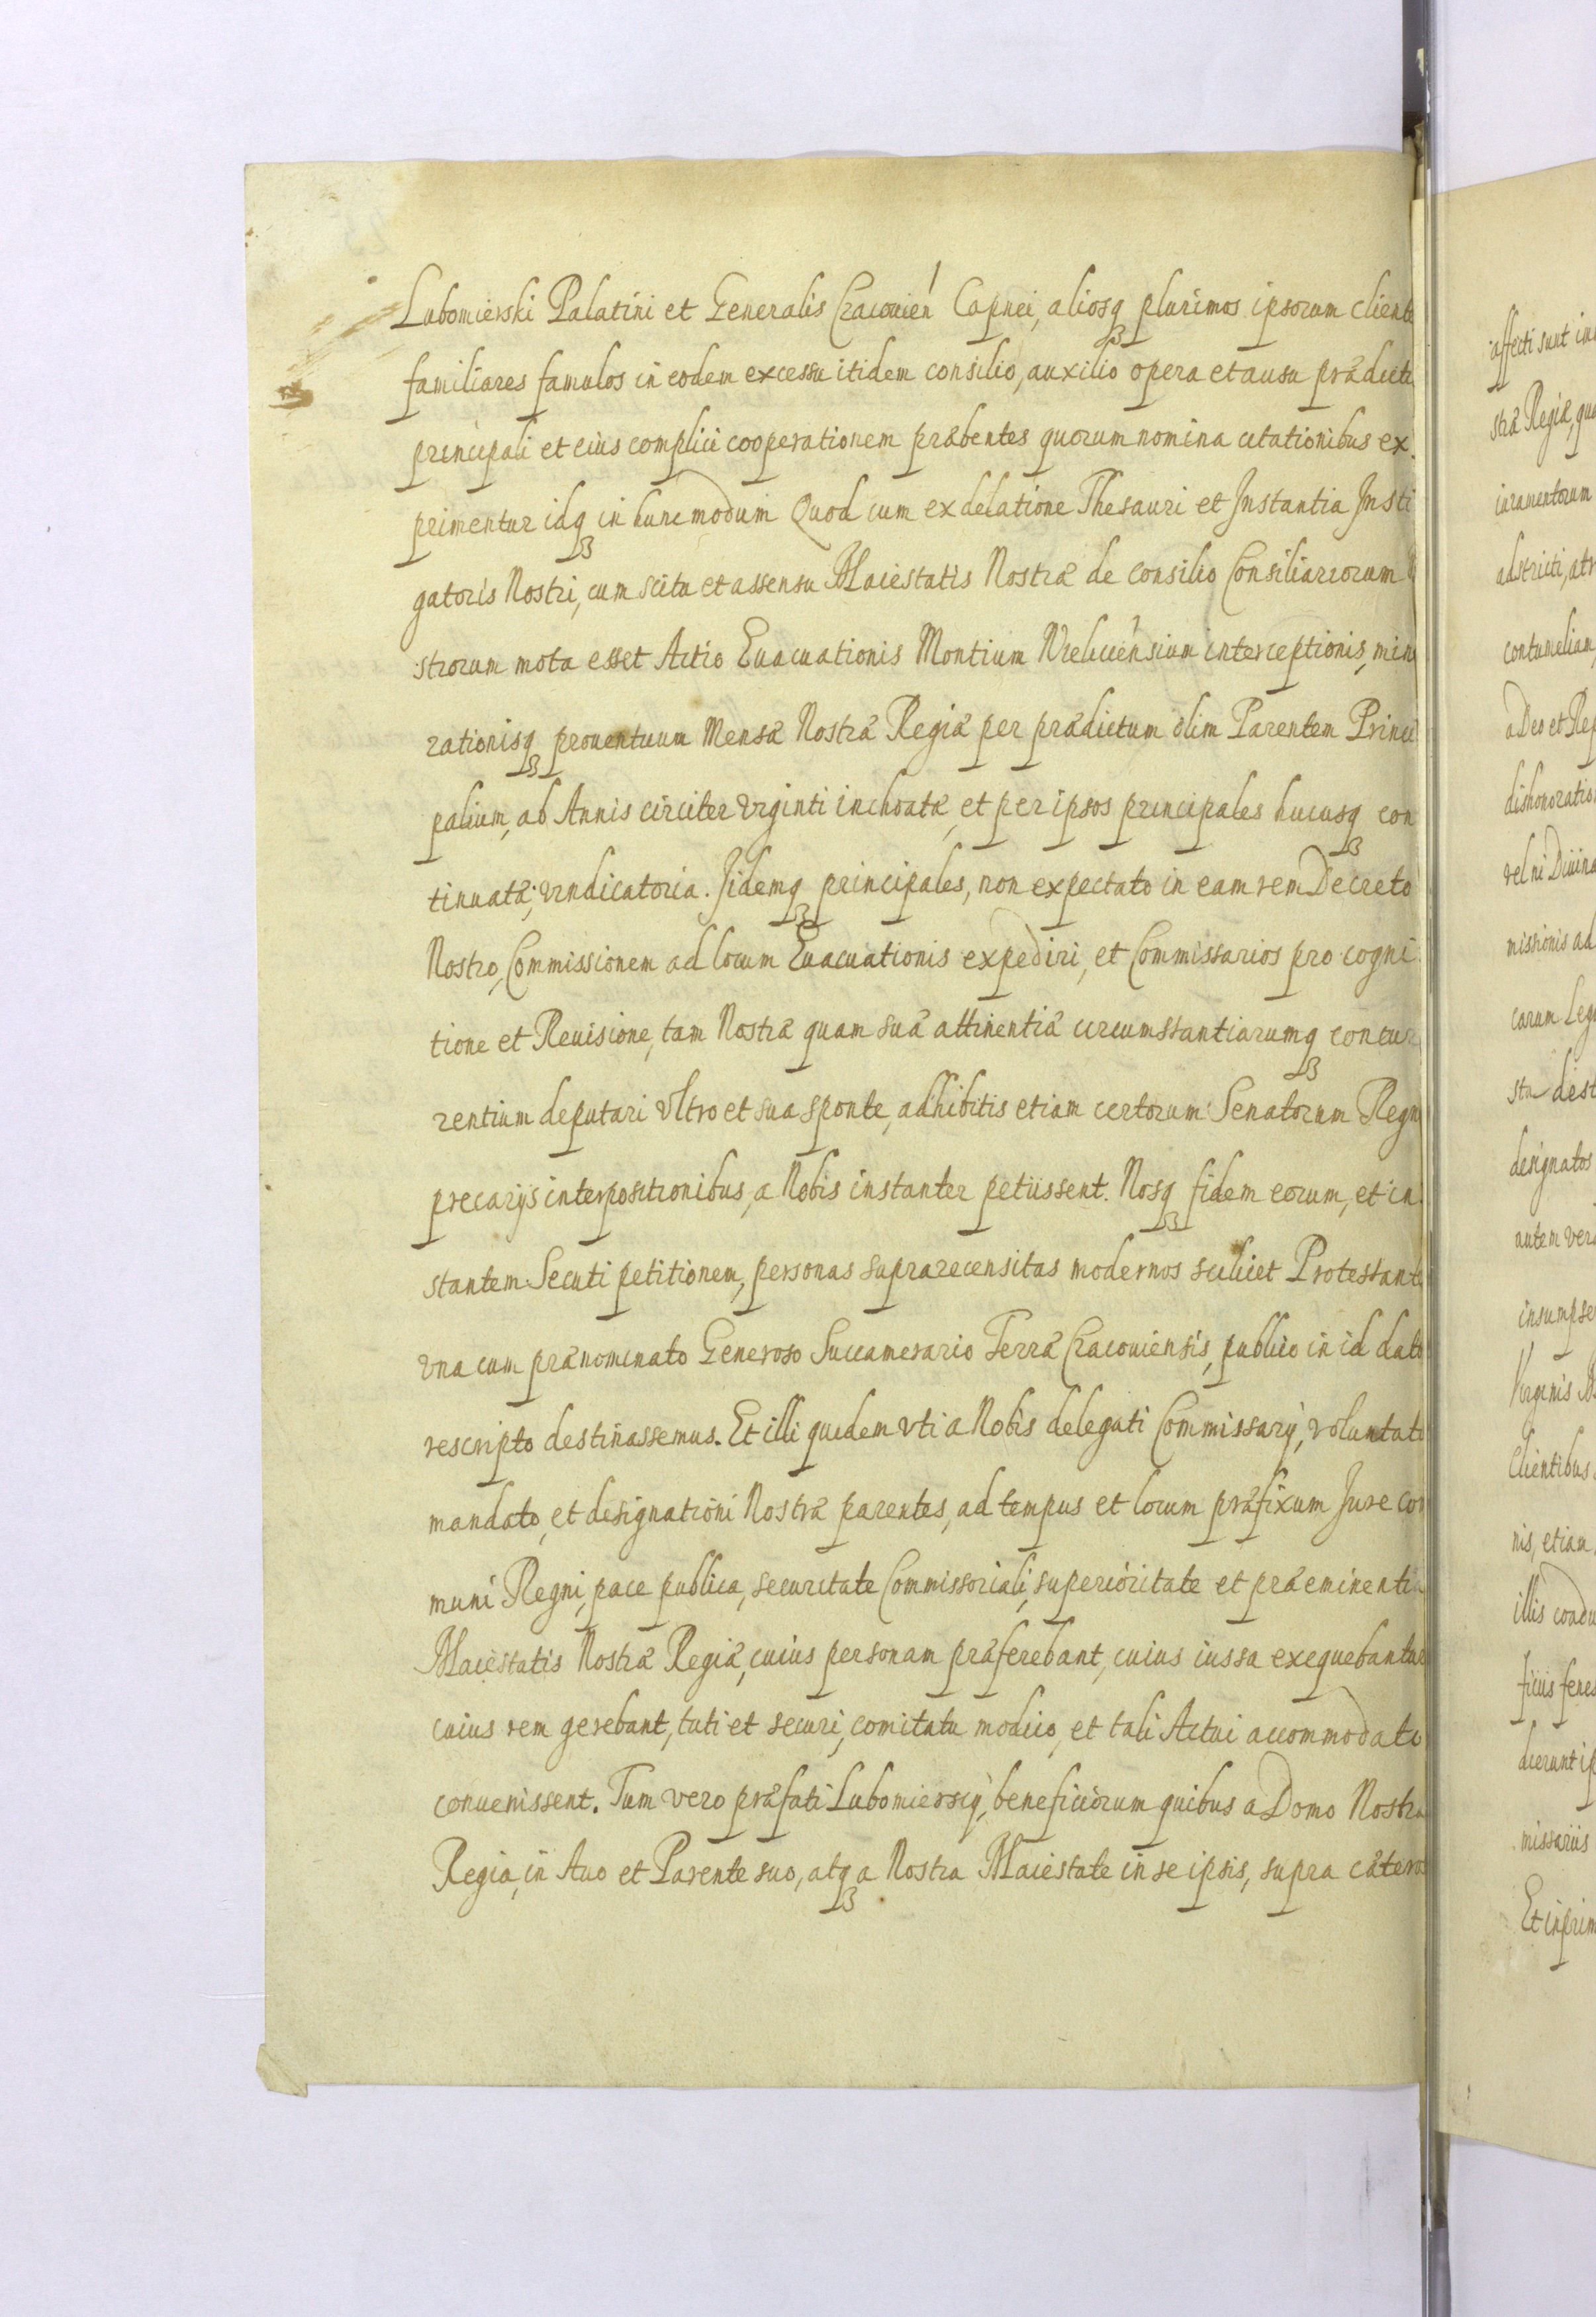 Lubomierski Palatini et Generalis Cracouien Capnei, aliosq plurimos ipsorum cliente
familiares famulos in eodem excessu itidem consilio, auxilio opera et ausu prædicte
principali et eius complici cooperationem præbentes quorum nomina citationibus ex
primentur idq in hunc modum Quod cum ex delatione Thesauri et Instantia Insti
gatoris Nostri, cum scitu et assensu Maiestatis Nostræ de consilio Consiliariorum
strorum mota esset Actio Euacuationis Montium Vieliciensium interceptionis, min
rationisq prouentuum Mensæ Nostræ Regiæ per prædictum olim Parentem Princi
palium, ab Annis circiter Viginti inchoatæ, et per ipsos principales hucusq con
tinuatæ; vindicatoria. Iidemq principales, non expectato in eam rem Decreto
Nostro, Commissionem ad locum Euacuationis expediri, et Commissarios pro cogni
tione et Reuisione, tam Nostræ quam suæ attinentiæ circumstantiarumq concur
rentium deputari vltro et sua sponte, adhibitis etiam certorum Senatorum Regn
precarijs interpositionibus, a Nobis instanter petiissent. Nosq fidem eorum, et in
stantem Secuti petitionem, personas suprarecensitas modernos scilicet Protestante
vna cum prænominato Generoso Succamerario Terræ Cracouiensis, publico in id dato
rescripto destinassemus. Et illi quidem vti a Nobis delegati Commissarij, voluntati
mandato, et designationi Nostræ parentes, ad tempus et locum præfixum Iure com
muni Regni, pace publica, securitate Commissoriali, superioritate et præeminentia
Maiestatis Nostræ Regiæ, cuius personam præferebant, cuius iussa exequebantur
cuius rem gerebant, tuti et securi, comitatu modico, et tali Actui accommodato
conuenissent. Tum vero præfati Lubomierscij, beneficiorum quibus a Domo Nostra
Regia, in Auo et Parente suo, atq a Nostra Maiestate in se ipsis, supra cæteros
affecti sunt
stræ Regiæ,
iuramentorum
adstricti,
contumeliam
a Deo et
vel ni
missionis ad
carum
designatos
autem
Virginis
Clientibus
nis, etiam
illis
missariis